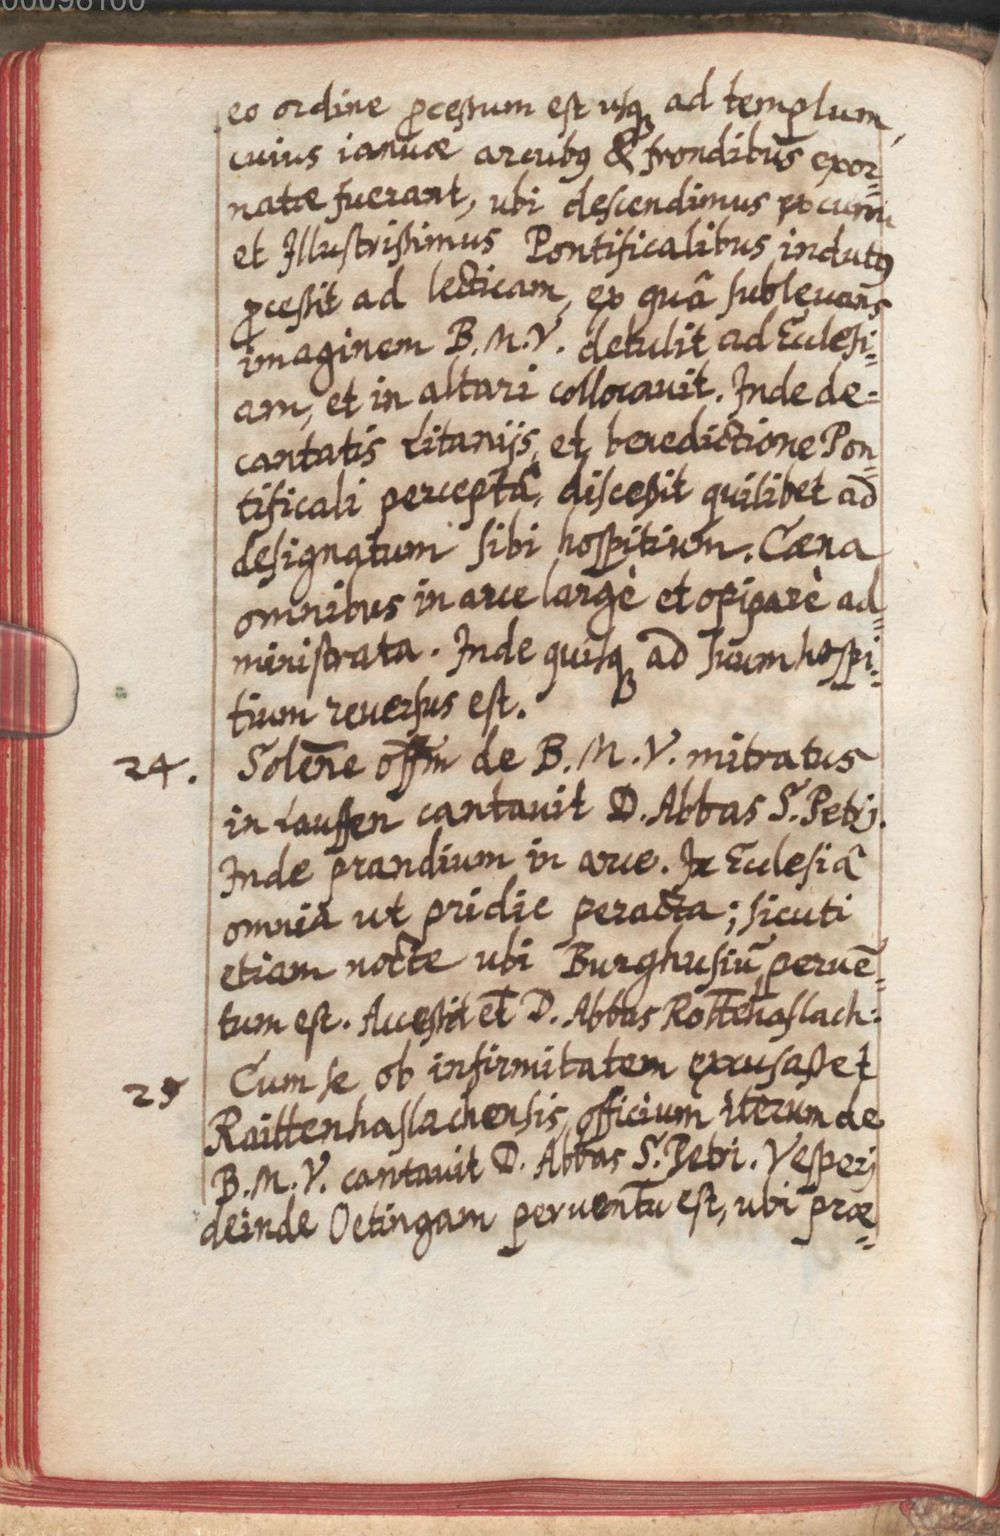 00098100
eo ordine ꝓcessum est usqꝫ ad templum,
cuius ianuæ arcubꝯ & frondibus exor=
natæ fuerant, ubi descendimus
et Illustrissimus Pontificalibus indutꝯ
ꝓcessit ad lecticam, ex quâ sublevans
imaginem B. M. V. detulit ad Ecclesi=
am, et in altari collocavit. Inde de=
cantatis Litanijs, et benedictione Pon=
tificali perceptâ, discessit quilibet ad
designatum sibi hospitium. Cæna
omnibus in arce largè et opiparè ad=
ministrata. Inde quisqꝫ ad suum hospi=
tium reversus est.
24. Solen̄e offm̄ de B. M. V. mitratus
in Lauffen cantavit D. Abbas S. Petrj.
Inde prandium in arce. In Ecclesiâ
omnia ut pridie peracta; sicuti
etiam nocte ubi Burghusiū pervē=
tum est. Accessit et D. Abbas Rottehaslach:
25 Cum se ob infirmitatem excusasset
Raittenhaslachensis, officium iterum de
B. M. V. cantavit D. Abbas S. Petri. Vesperj
deinde Oetingam perventū est, ubi præ=